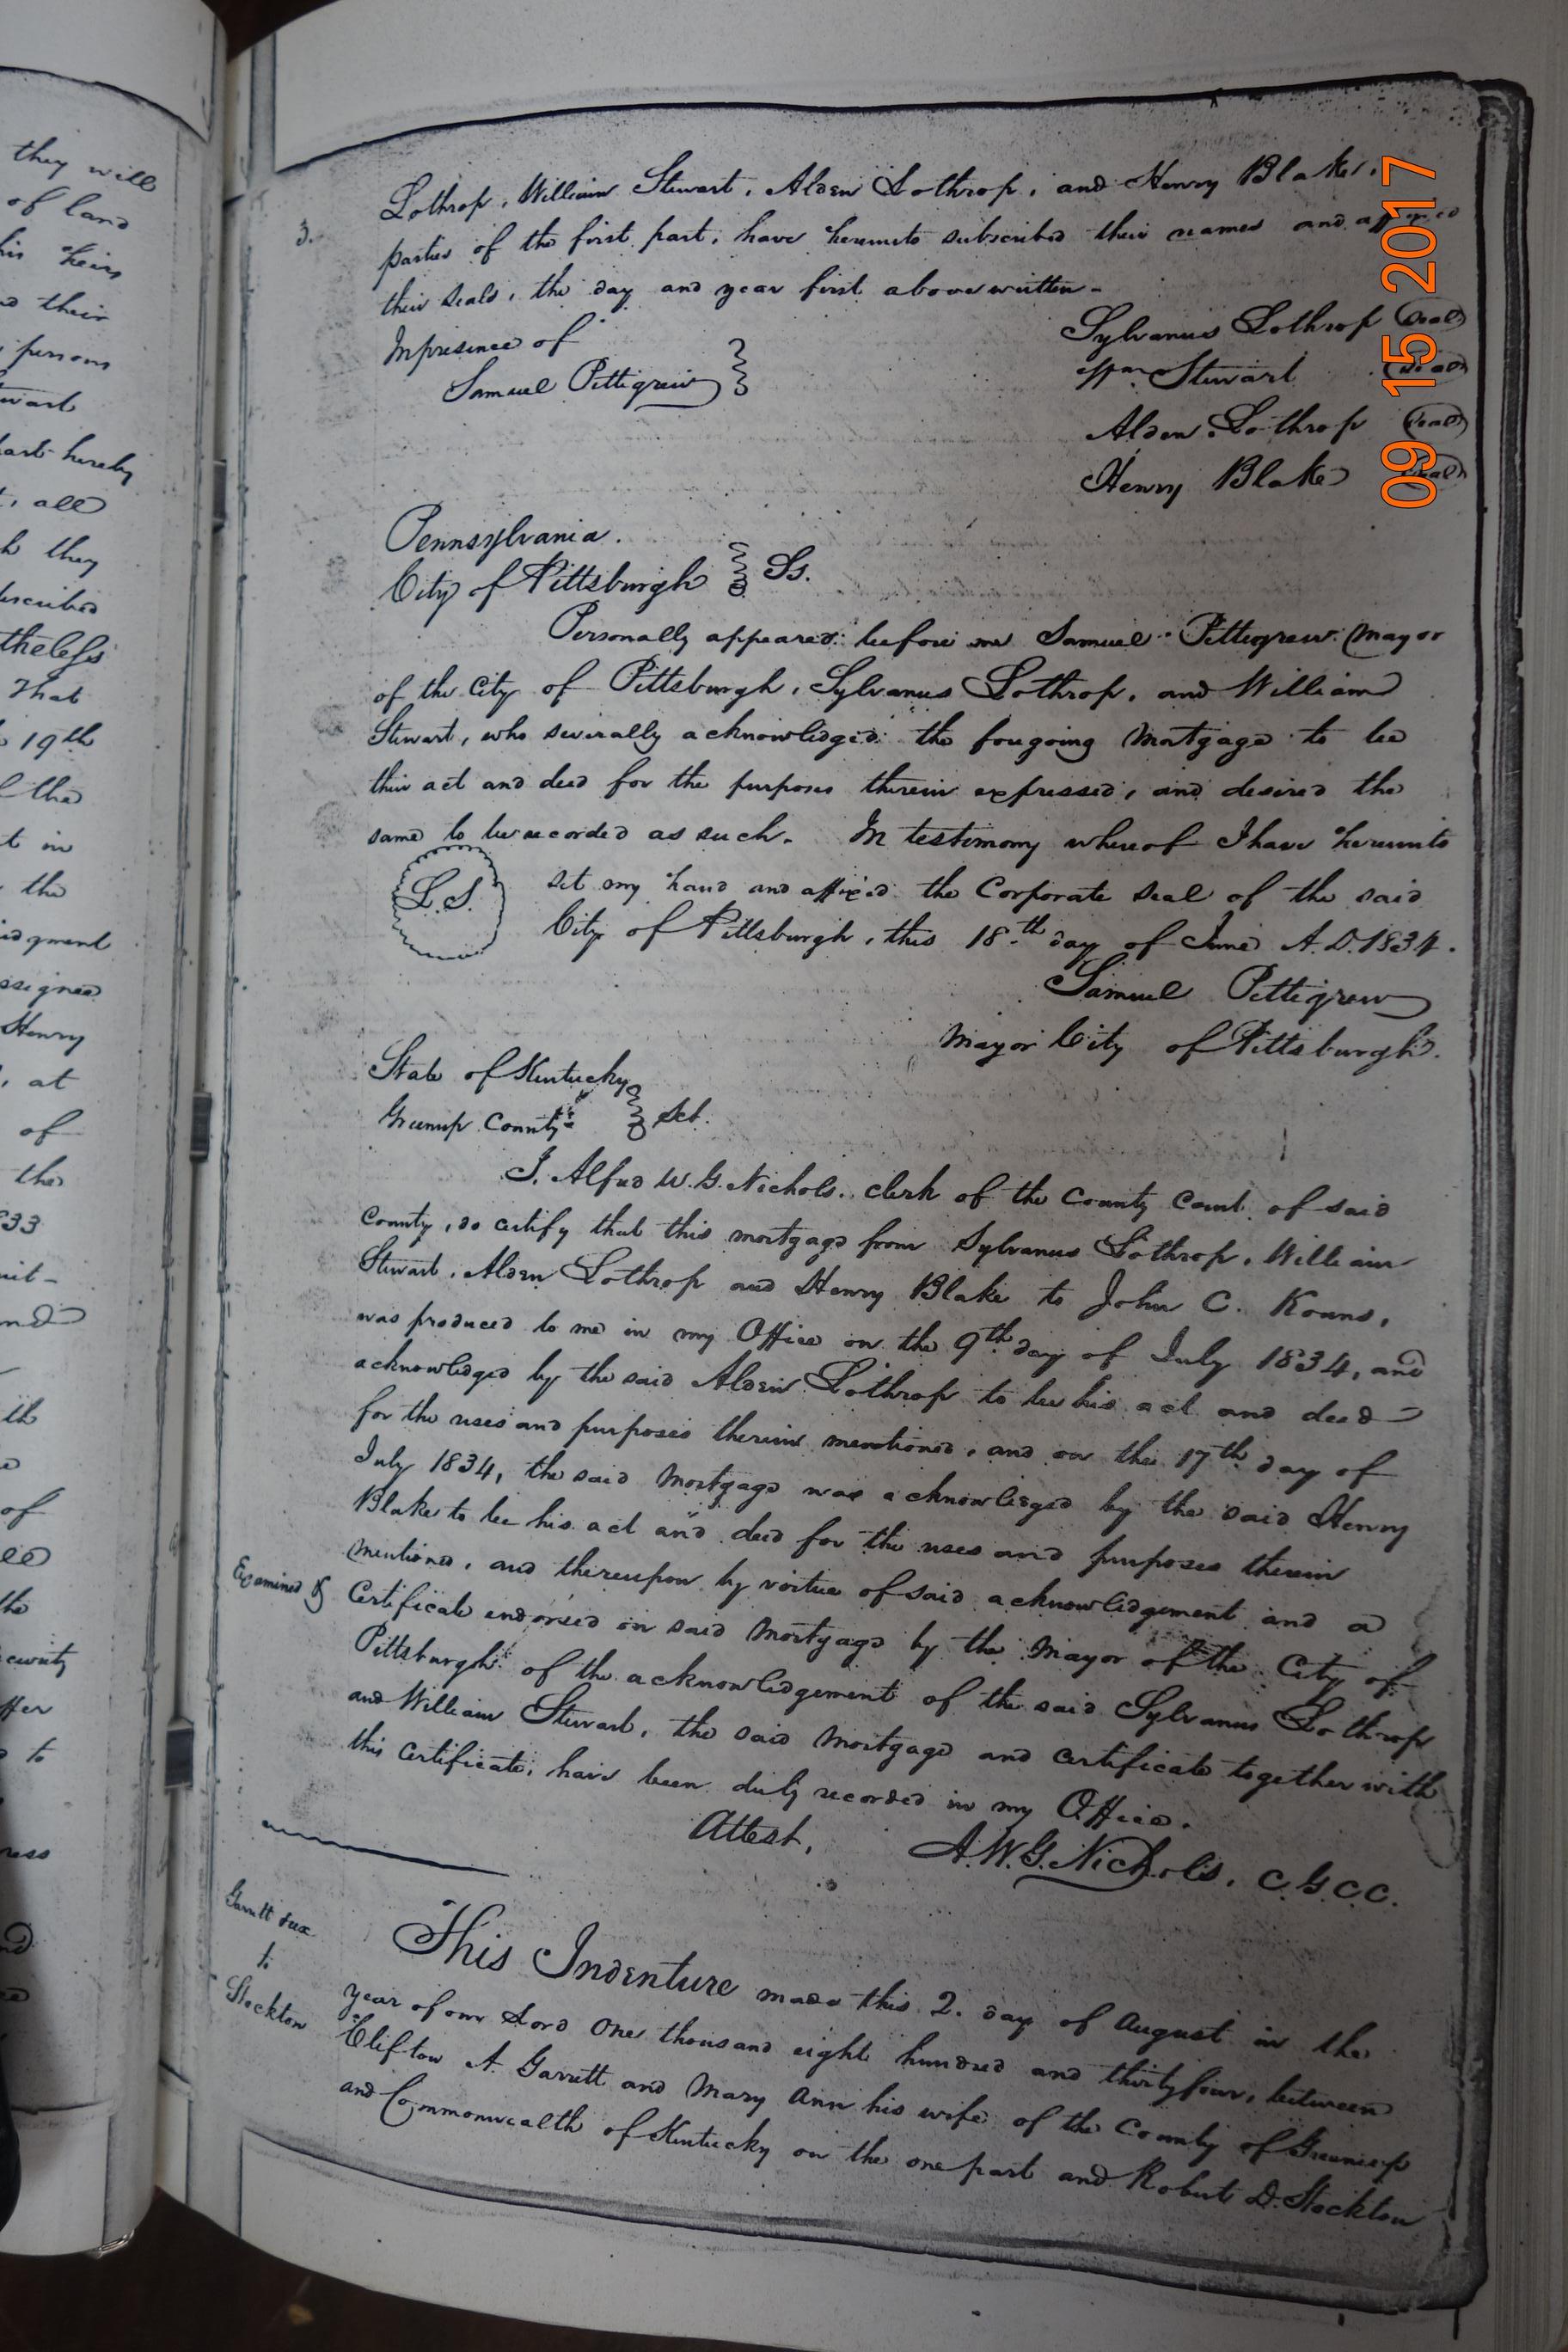 they will
of land
his heirs
and their
persons
Stewart
part hereby
, all
h they
described
theless
That
19th
the
t in
the
Judgment
assigned
Henry
, at
of
the
833
and
th
of
the
security
offer
to
3.
Lothrop, William Stewart, Alden Lothrop, and Henry Blake,
parties of the first part, have hereunto subscribed their names and affixed
their seals, the day and year first above written-
In presence of
Samuel Pettigrew
Sylvanus Lothrop (Seal)
Wm Stewart (Seal)
Alden Lothrop (Seal)
Henry Blake (Seal)
Pennsylvania.
City of Pittsburgh } Ss.
Personally appeared before me Samuel Pettigrew Mayor
of the City of Pittsburgh, Sylvanus Lothrop, and William
Stewart, who severally acknowledged the foregoing Mortgage to be
their act and deed for the purposes therein expressed, and desired the
same to be recorded as such. In testimony whereof I have hereunto
L.S. set my hand and affixed the Corporate seal of the said
City of Pittsburgh, this 18th day of June A.D. 1834.
Samuel Pettigrew
Mayor City of Pittsburgh.
State of Kentucky
Greenup County } Sct.
I, Alfred W. G. Nichols, clerk of the County Court of said
County, do certify that this mortgage from Sylvanus Lothrop, William
Stewart, Alden Lothrop and Henry Blake to John C. Kouns,
was produced to me in my Office on the 9th day of July 1834, and
acknowledged by the said Alden Lothrop to be his act and deed
for the uses and purposes therein mentioned, and on the 17th day of
July 1834, the said Mortgage was acknowledged by the said Henry
Blake to be his act and deed for the uses and purposes therein
Examined
mentioned, and thereupon by virtue of said acknowledgement and a
Certificate endorsed on said Mortgage by the Mayor of the City of
Pittsburgh of the acknowledgement of the said Sylvanus Lothrop
and William Stewart, the said Mortgage and Certificate together with
this Certificate, have been duly recorded in my Office.
Attest, A. W. G. Nichols, C.G.C.C.
Garrett &ux
to
Stockton
This Indenture made this 2. day of August in the
year of our Lord One thousand eight hundred and thirty four, between
Clifton A. Garrett and Mary Ann his wife of the County of Greenup
and Commonwealth of Kentucky on the one part and Robert D. Stockton
09 15 2017